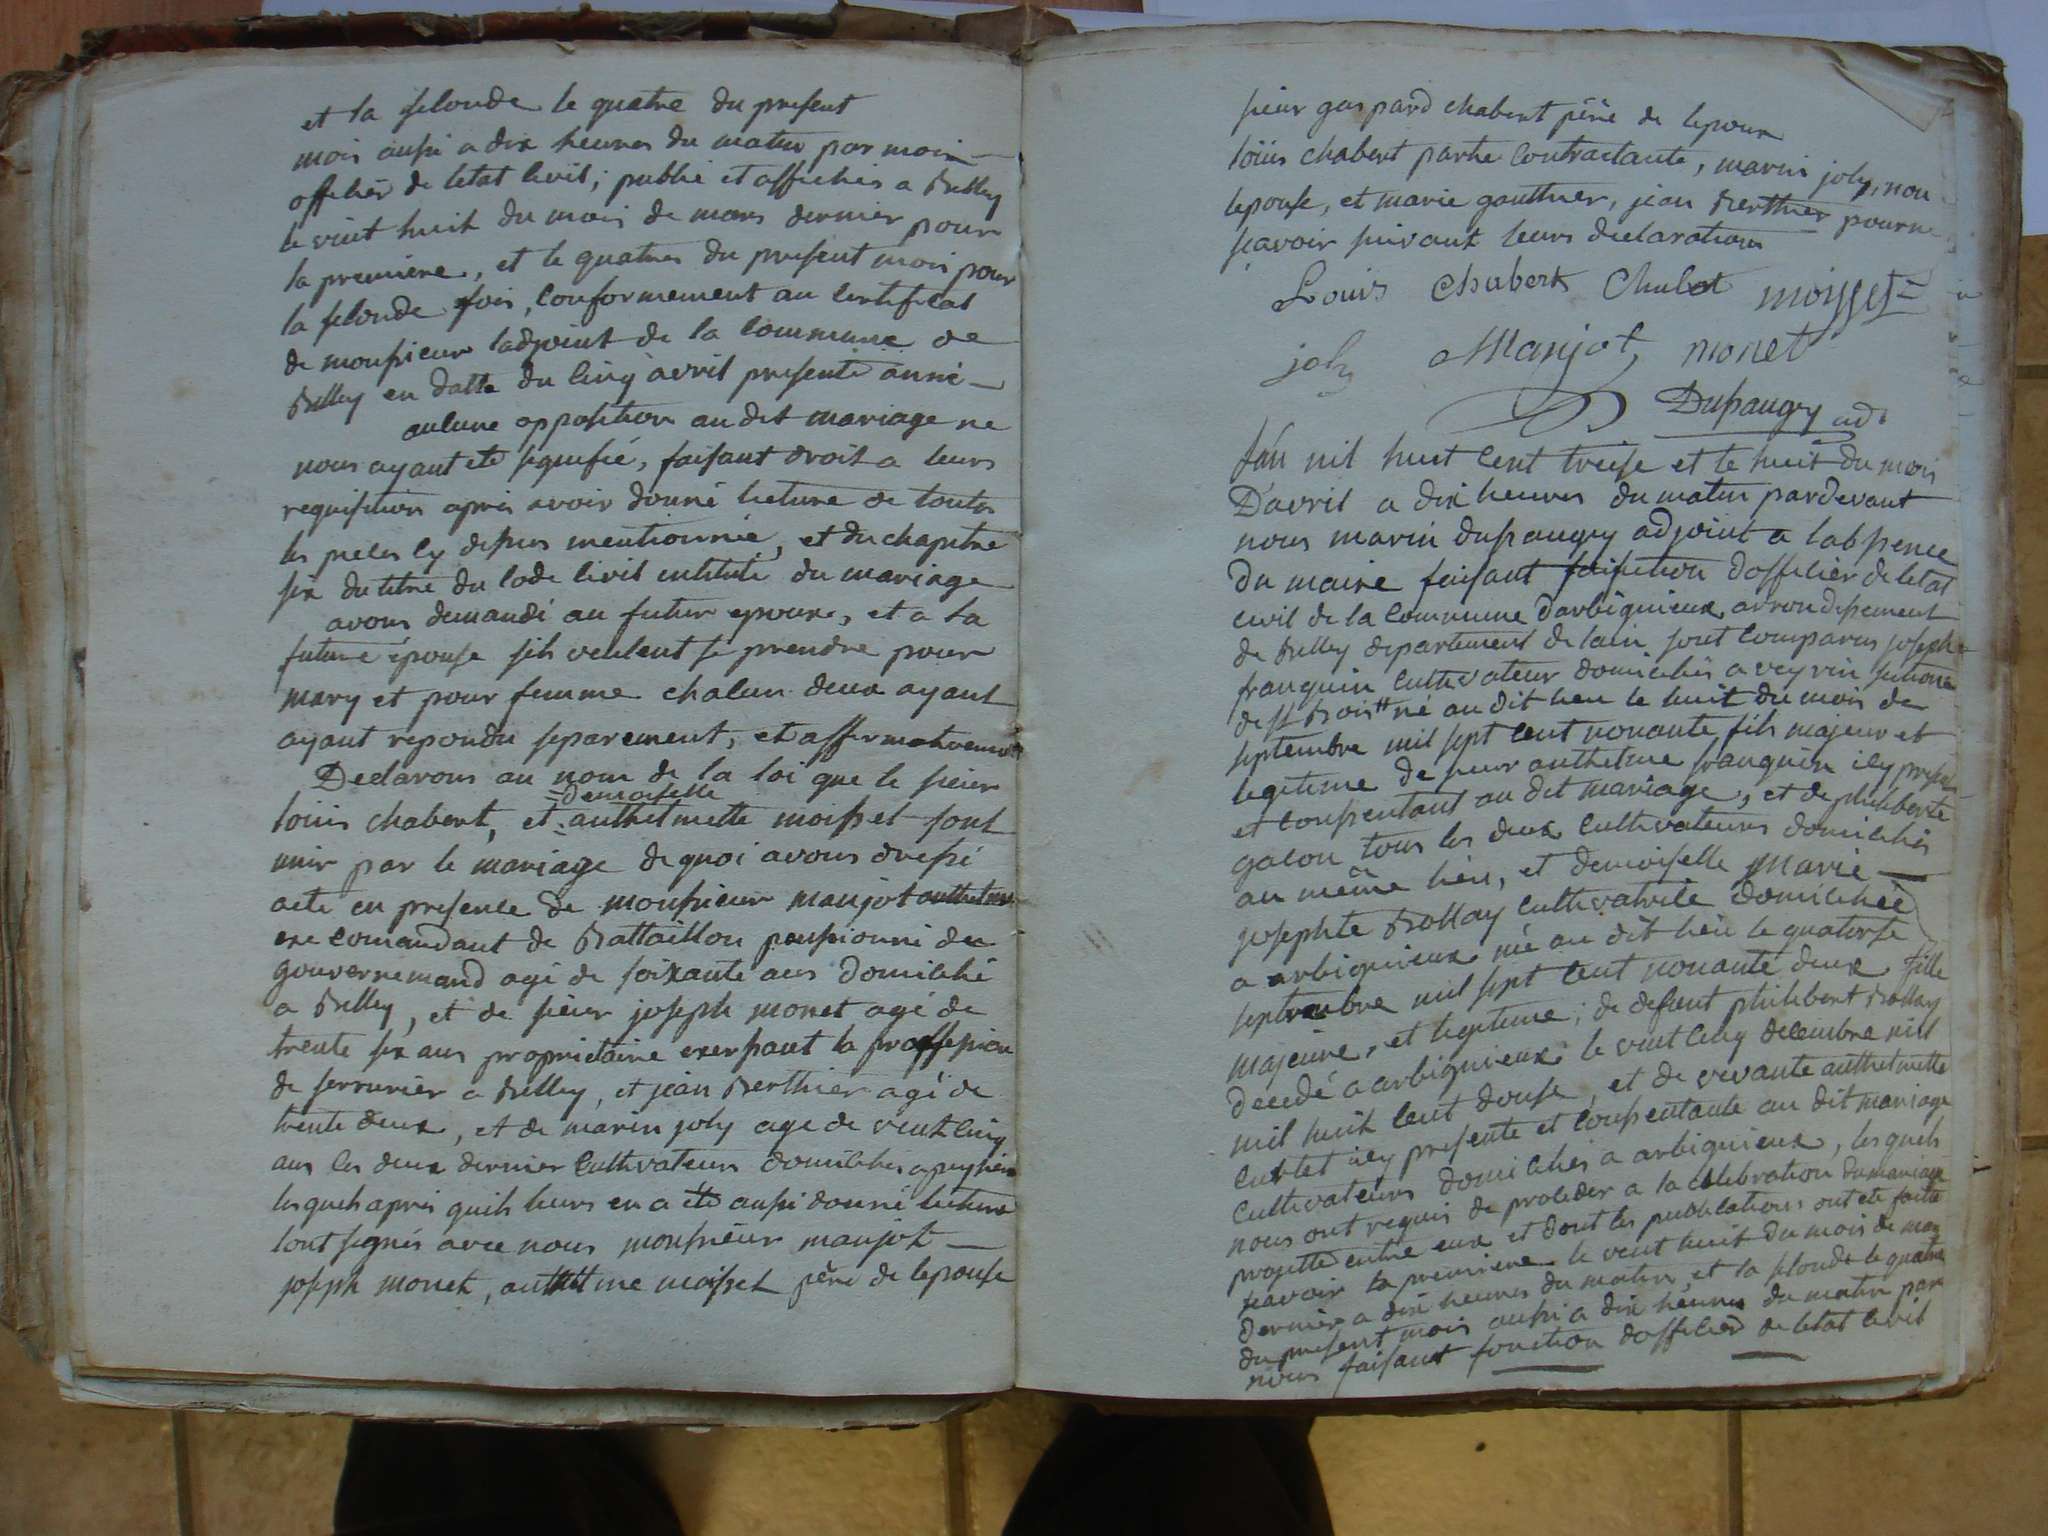 et la seconde le quatre du present
mois aussi a dix heures du matin par moi
officier de letat civil, publié et affichés a Belley
le vint huit du mois de mars dernier pour
la premiere, et le quatres du present mois pour
la seconde fois, conformement au certificat
de monsieur ladjoint de la commune de
Belley en datte du cinq avril presente anné
aucune opposition au dit mariage ne
nous ayant ete signifié, faisant droit a leurs
requisition apres avoir donné lecture de toutes
les pieces cy dessus mentionnée, et du chapitre
six du titre du code civil intitulé du mariage
avons demandé au futur epoux, et a la
future épouse sils veulent se prendre pour
mary et pour femme chacun deux ayant
ayant repondu separement, et affirmativement
Declarons au nom de la loi que le sieur
demoiselle
loüis chabert, et anthelmette moisset sont
unis par le mariage de quoi avons dressé
acte en presence de monsieur manjot anthelme
exe comandant de Battaillon pensionné du
gouvernemand agé de soixante ans domicilié
a Belley, et de sieur joseph monet agé de
trente six ans proprietaire exersant la proffession
de serrurier a Belley, et jean Berthier agé de
trente deux, et de marin joly age de vint cinq
ans les deux dernier cultivateurs domiciliés a peyrieu
les quels apres quils leurs en a été aussi donné lecture
lont signés avec nous monsieur manjot
joseph monet, anthelme moisset père de lepouse
sieur gaspard chabert père de lepoux
loüis chabert partie contractante, marin joly, non
lepouse, et marie gauthier, jean Berthier pour ne
scavoir suivant leurs declarations
Louis chabert Chabert moisset
joly Manjot monet
Dupaugey ad.
Lan mil huit cent treise et le huit du mois
D'avril a dix heures du matin pardevant
nous marin dupaugey adjoint a labsence
du maire faisant fonction dofficier de letat
civil de la commune darbignieux arrondissement
de Belley departement de lain sont comparus joseph
franquin cultivateur domicilié a veyrin
de St Bois né au dit lieu le huit du mois de
septembre mil sept cent nonante, fils majeur et
legitime de sieur anthelme franquin icy present
et consentant au dit mariage, et de philiberte
gacon tous les deux cultivateurs domiciliés
au même lieu, et demoiselle Marie
josephte Bollay cultivatrice domiciliée
a arbignieux né au dit lieu le quatorse
septembre mil sept cent nonante deux fille
majeure, et legitime, de defunt philibert Bollay
decedé a arbignieux le vint cinq decembre mil
mil huit cent douse, et de vivante anthelmette
icy presente et consentante au dit mariage
cultivateurs domiciliés a arbignieux, les quels
nous ont requis de proceder a la celebration du mariage
projetté entre eux et dont les publications ont ete faitte
scavoir la premiere le vint huit du mois de mars
dernier a dix heures du matin, et la seconde le quatre
du present mois aussi a dix heures du matin par
nous faisant fonction dofficier de letat civil